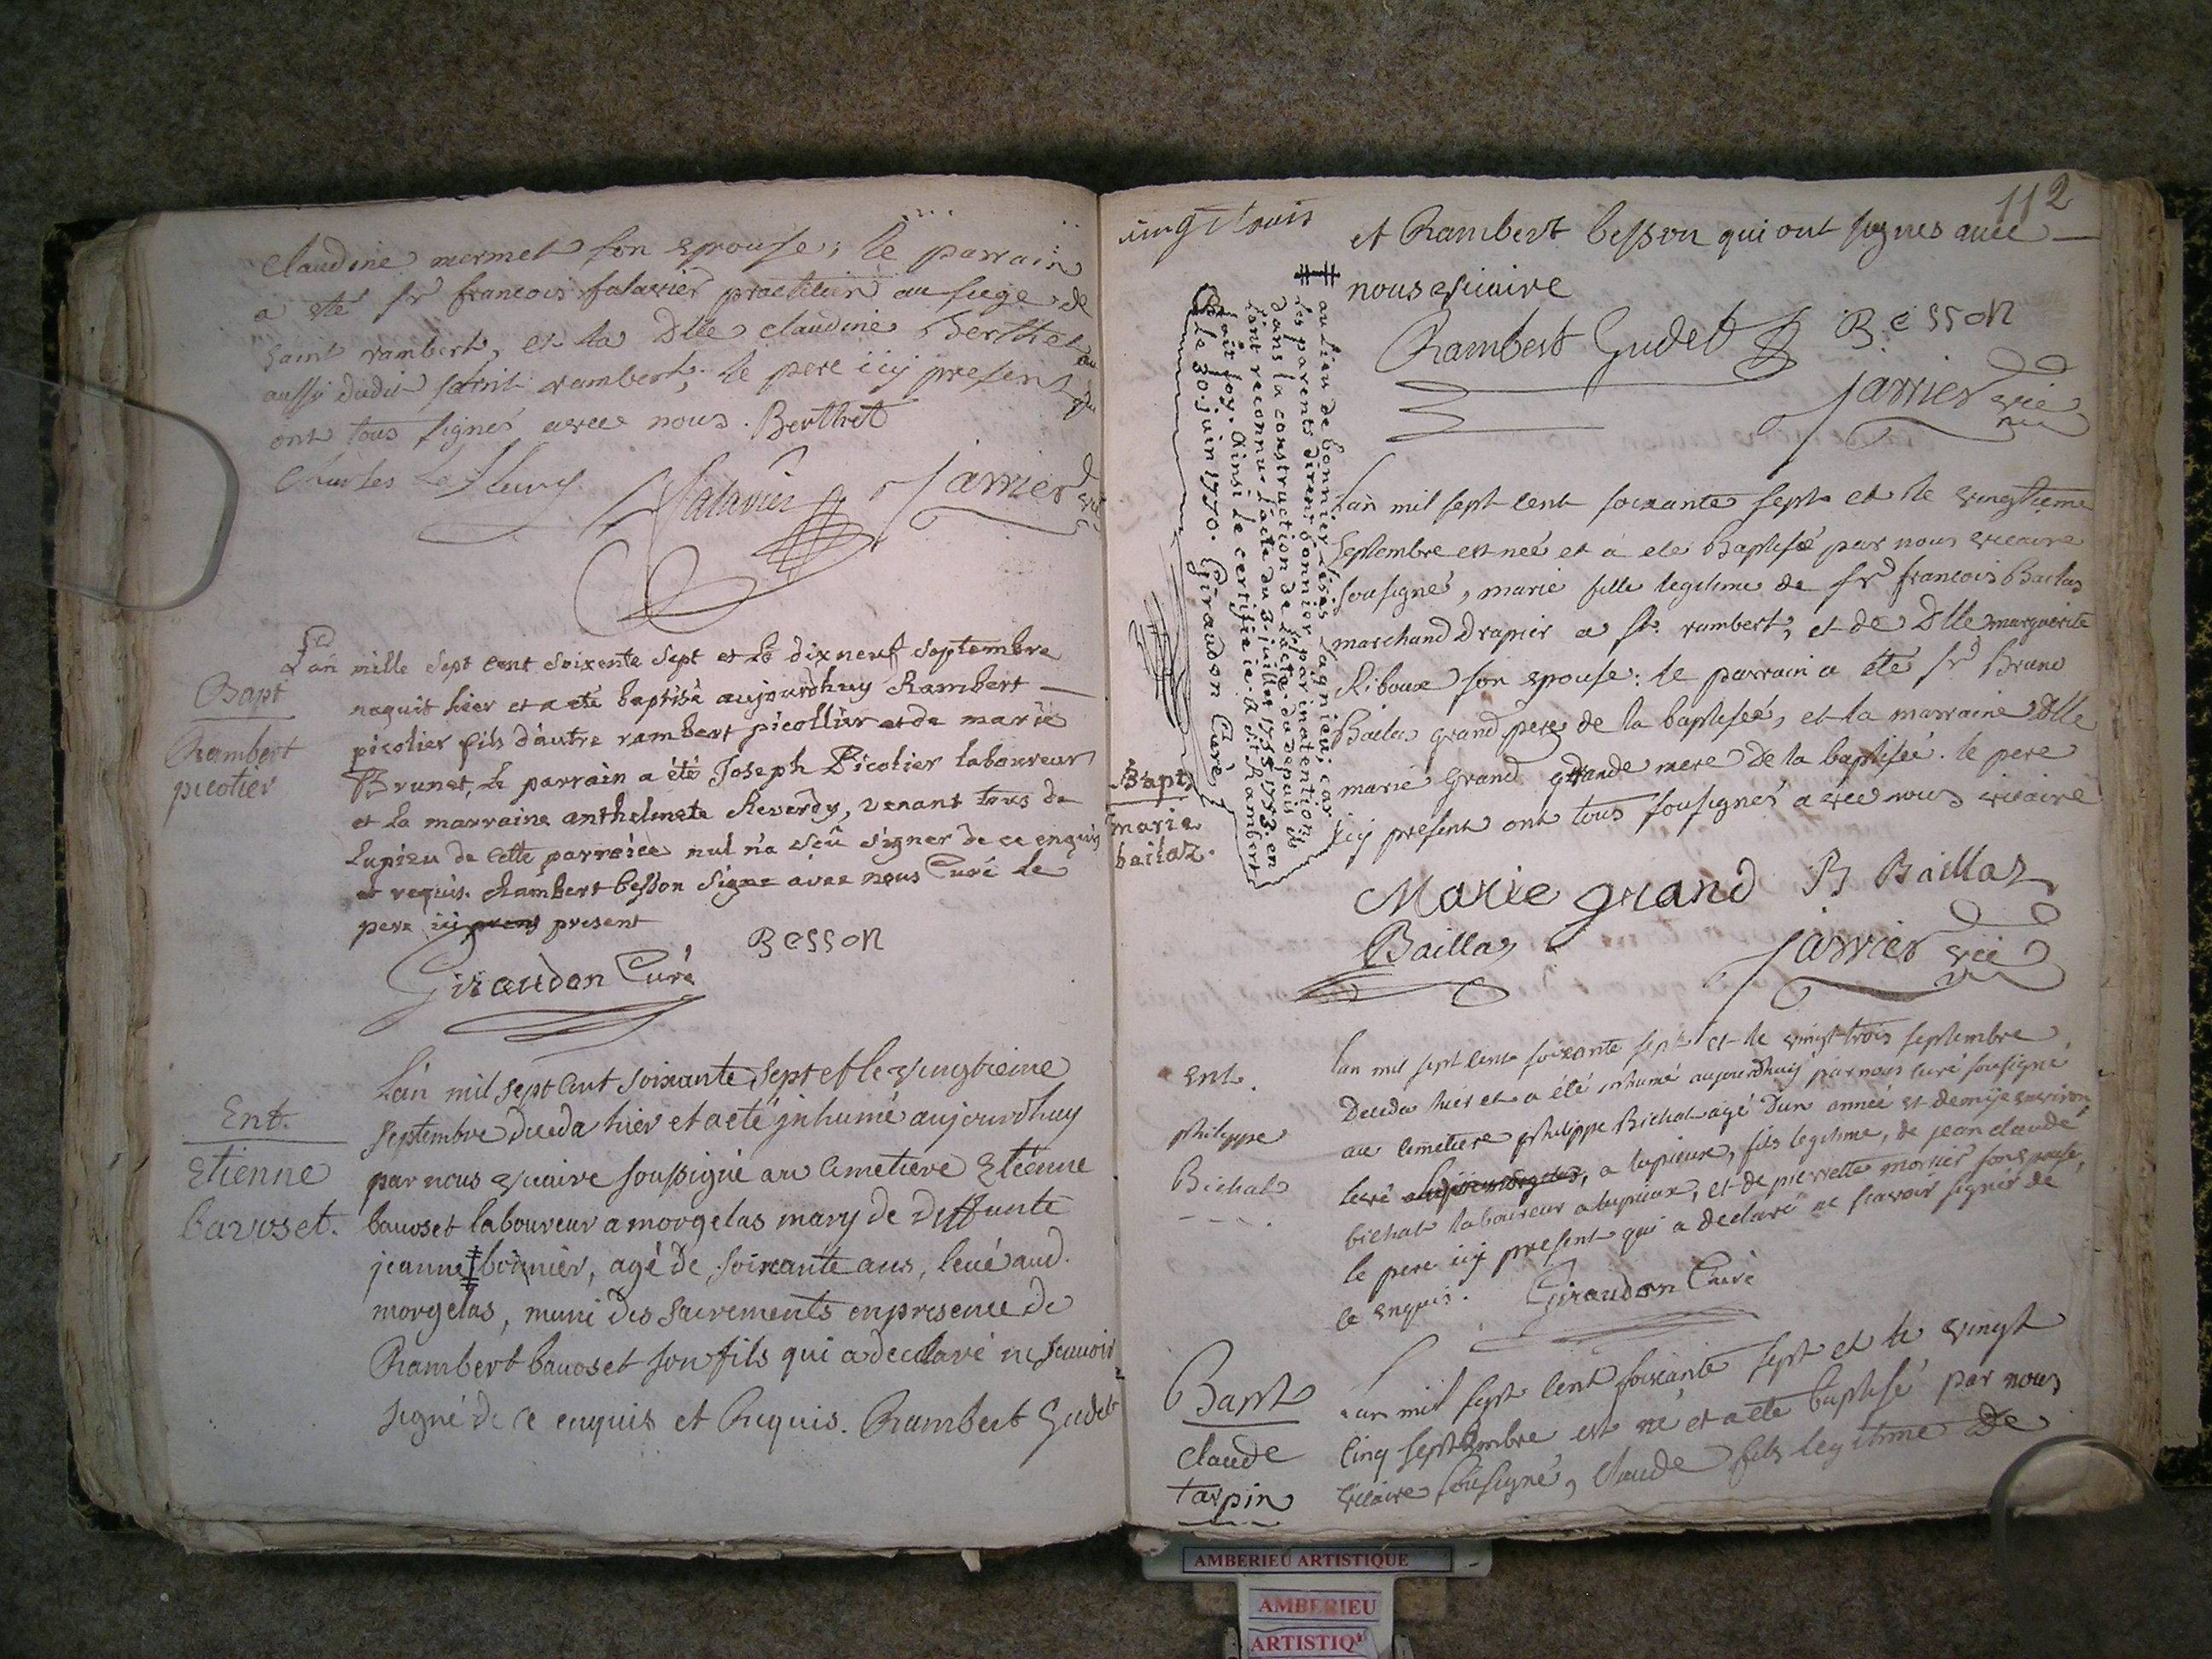 claudine mermet son epouse; le parrain
a eté sr francois falavier practicien au siege de
saint rambert, et la Dlle claudine Berthet
aussi dudit saint rambert, le pere icy present
ont tous signés avec nous. Berthet
Charles Le fleury falavier Jarrier vic
Bapt
Rambert
picotier
L'an mille sept cent soixente sept et le dix neuf septembre
naquit hier et a eté baptisé aujourdhuy Rambert
picolier fils d'autre rambert picollier et de marie
Brunet, le parrain a été Joseph Picolier laboureur
et la marraine anthelmete Reverdy, venant tous de
Lupieu de cette parroisse nul n'a sçû signer de ce enquis
et requis. Rambert besson signe avec nous Curé le
pere ici present
BESSON
Giraudon Curé
Ent.
Etienne
bavoset.
L'an mil sept cent soixante sept et le vingtieme
septembre deceda hier et a eté jnhumé aujourdhuy
par nous vicaire soussigné au cimetiere Etienne
bavoset laboureur a morgelas mary de deffunte
jeanne bonnier, agé de soixante ans, levé aud.
morgelas, muni des sacrements en presence de
Rambert bavoset son fils qui a declaré ne scauoir
signé de ce enquis et Requis. Rambert Gudet
112
vingt trois
et Rambert besson qui ont signes avec
nous vicaire
Rambert Gudet BESSON
Jarrier vic
au lieu de bonnier lisés agnieu; car
les parents dirent bonnier par inatention
dans la construction de l'acte. du depuis ils
ont reconnu l'acte du 3. juillet 1755. 1773. en
fait foy. Ainsi le certifie ie. à St Rambert
le 30. juin 1770. Giraudon Curé
Bapt
marie
bailaz.
Lan mil sept cent soixante sept et le vingtieme
septembre est née et a eté Baptisée par nous vicaire
sousigné, marie fille legitime de sr francois Bailas
marchand Drapier a st. rambert, et de Dlle marguerite
Riboux son epouse: le parrain a eté sr Bruno
Bailas grand pere de la baptisée, et la marraine Dlle
marie Grand grande mere De la baptisée. le pere
icy present ont tous sousignés avec nous vicaire
Marie grand B Baillaz
Baillas Jarrier vic
Ent.
Philippe
Bichat
lan mil sept cent soixante sept et le vingt-trois septembre
Deceda hier et a été inhumé aujourdhuy par nous curé sousigné
au cimetiere philippe Bichat agé Dun année et demÿe environ
levé a lupieux, fils legitime, de jean claude
bichat laboureur a lupieux, et de pierrette mortier son epouse,
le pere icy present qui a declaré ne scavoir signer de
ce enquis. Giraudon Curé
Bapt
claude
tarpin
Lan mil sept cent soixante sept et le vingt
cinq septembre est né et a eté baptisé par nous
vicaire sousigné, claude fils legitime De
AMBERIEU ARTISTIQUE
AMBERIEU
ARTISTIQ